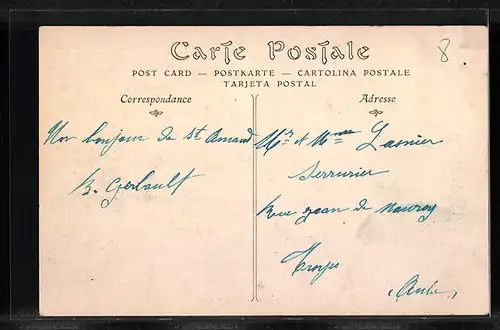 Carte Postale
POST CARD — POSTKARTE — CARTOLINA POSTALE
TARJETA POSTAL
Correspondance
Adresse
8
bonjour de St Amand
B. Gerbault
Mr et Mme Lasnier
Serrurier
Rue jean de mauroy
Troyes
(Aube)